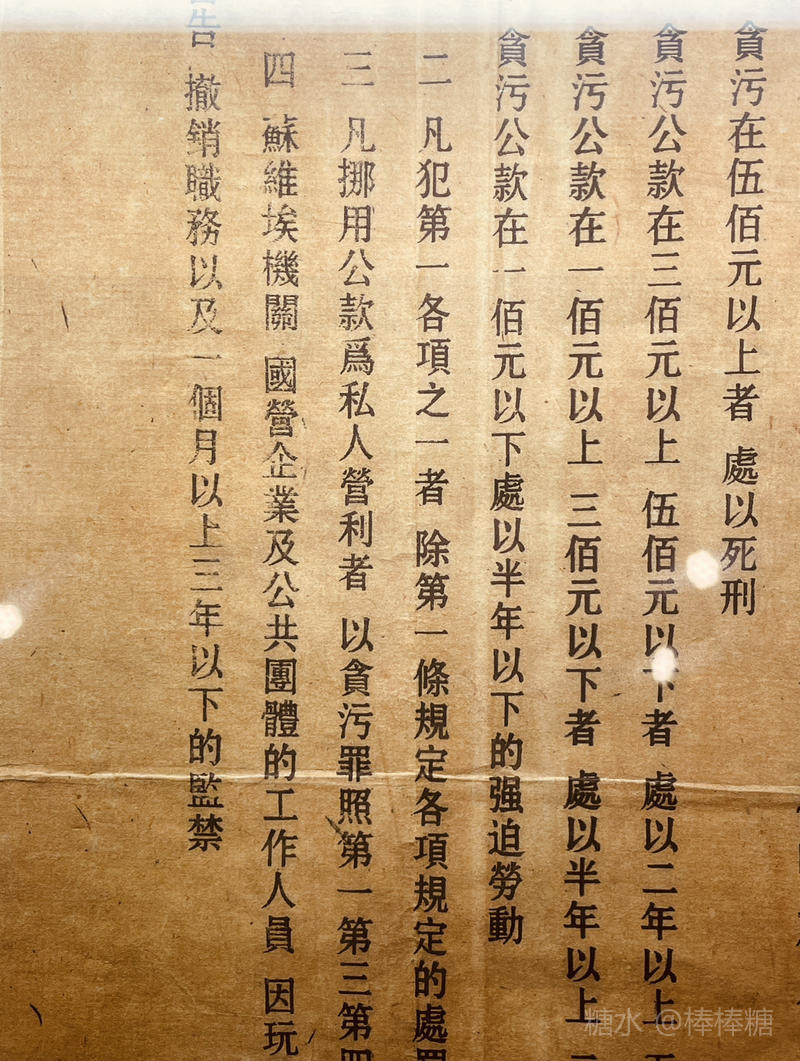 貪污在伍佰元以上者 處以死刑
貪污公款在三佰元以上 伍佰元以下者 處以二年以上
貪污公款在一佰元以上 三佰元以下者 處以半年以上
貪污公款在一佰元以下處以半年以下的强迫勞動
二 凡犯第一各項之一者 除第一條規定各項規定的處
三 凡挪用公款爲私人營利者 以貪污罪照第一第三第四
四 蘇維埃機關 國營企業及公共團體的工作人員 因玩
告 撤銷職務以及一個月以上三年以下的監禁
糖水 @棒棒糖